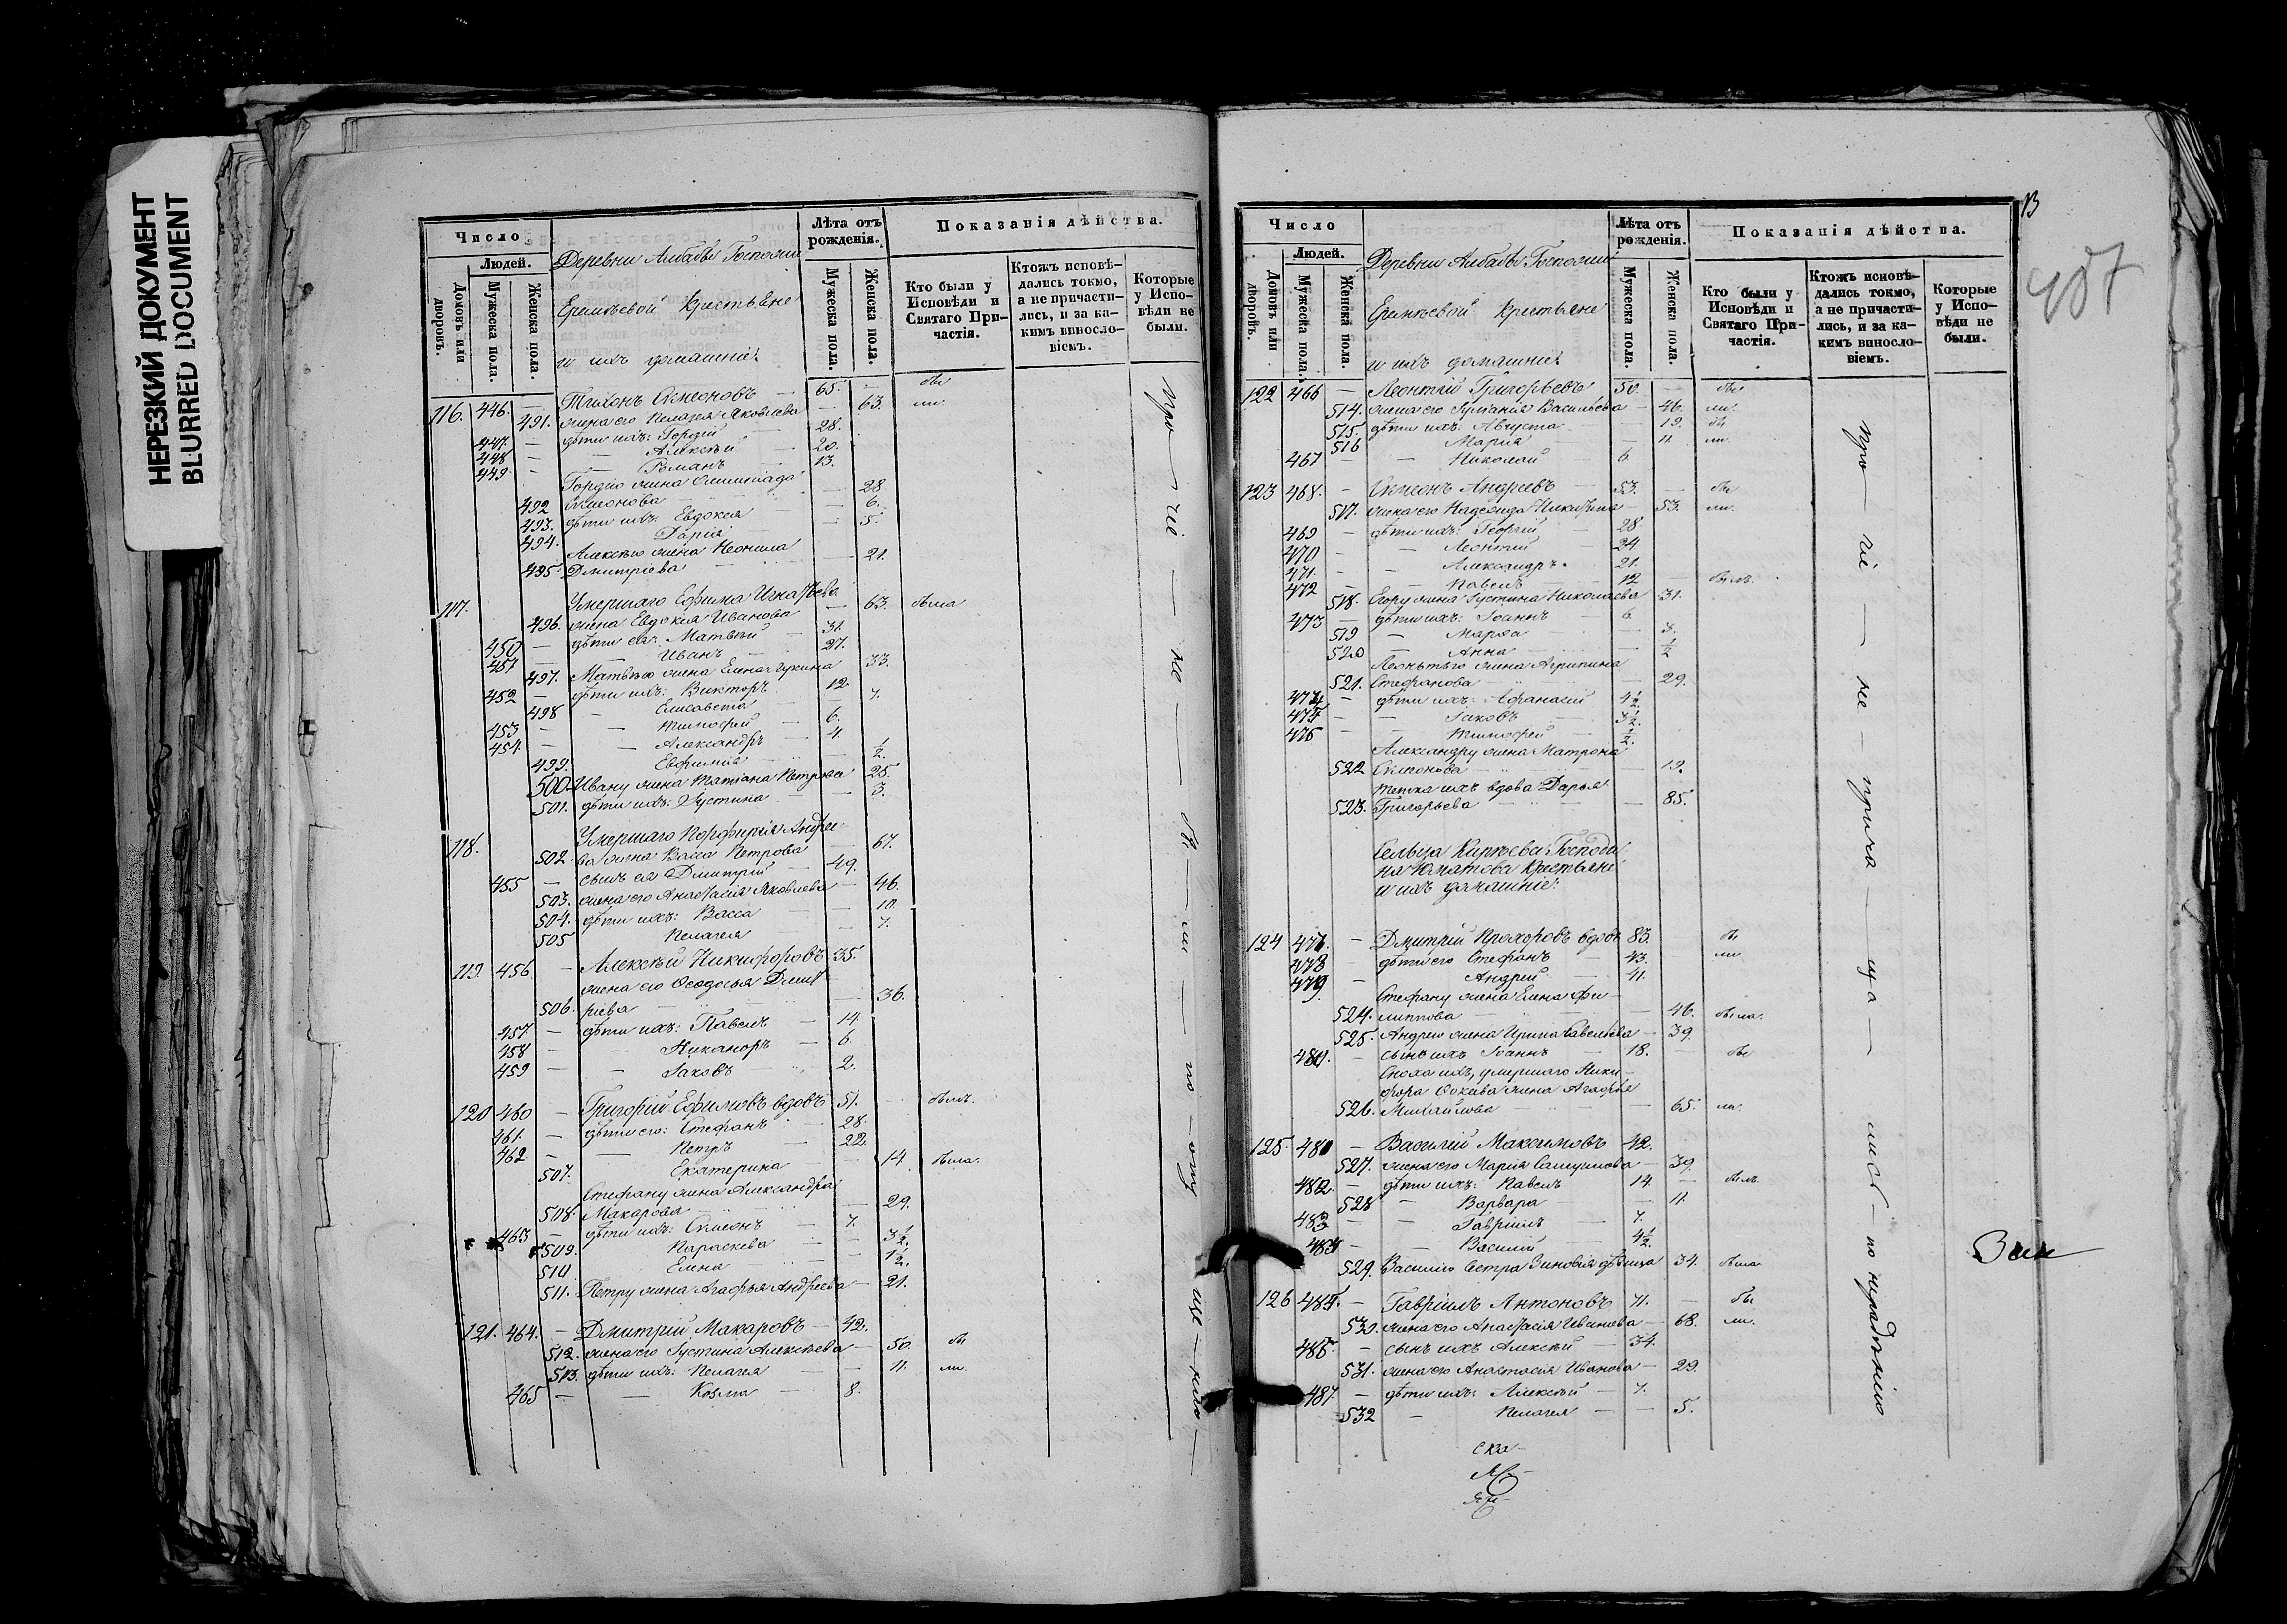 НЕРЕЗКИЙ ДОКУМЕНТ
BLURRED DOCUMENT
Число
Людей.
Домовъ или дворовъ.
Мужеска пола.
Женска пола.
Деревни Госпожи
Крестьяне
и ихъ домашніе:
Лѣта отъ рожденія.
Мужеска пола.
Женска пола.
Показанія дѣйства.
Кто были у Исповѣди и Святаго Причастія.
Ктожъ исповѣдались токмо, а не причастились, и за какимъ винословіемъ.
Которые у Исповѣди не были.
116. 446. — Тихонъ Симеоновъ — 65. — бы
491. жена его Пелагея Яковлева — 63. ли.
447. — дѣти ихъ: Гордій — 28.
448 — — Алексѣй — 20.
449. — — Романъ — 13.
Гордію жена Олимпіада
492 Симонова — 28.
493. дѣти ихъ: Евдокея — 6.
494. Дарія — 5.
Алексѣю жена Неонила
495. Дмитріева — 21.
117. Умершаго Ефима Игнатьева
496. жена Евдокея Иванова — 63. была
450 — дѣти ея: Матвѣй — 31.
451 — — Иванъ — 27.
497. Матвѣю жена Елена Лукина 33.
452 — дѣти ихъ: Викторъ 12.
498 — Елисавета — 7.
453 — Тимофей — 6.
454. — — Александръ — 4.
499. Евфимія — ½.
500. Ивану жена Татіана Петрова 25.
501. дѣти ихъ: Іустина — 3.
118. Умершаго Порфирія Андрее-
502. ва жена Васса Петрова — 67.
455 — сынъ ея Дмитрій — 49.
503. жена его Анастасія Яковлева — 46.
504. дѣти ихъ: Васса — 10.
505 Пелагея — 7.
119. 456 — Алексѣй Никифоровъ 35.
жена его Ѳеодосья Дмит-
506. ріева — 36.
457. — дѣти ихъ: Павелъ — 14
458 — — Никаноръ — 6.
459 — — Іаковъ — 2.
120 460 — Григорій Ефимовъ вдовъ 51. былъ.
461. — дѣти его: Стефанъ — 28.
462 — — Петръ — 22.
507. Екатерина — 14 была.
Стефану жена Александра
508. Макарова — 29.
463 — дѣти ихъ: Симеонъ — 7.
509. Параскева — 3½.
510 Елена — 1½.
511. Петру жена Агафья Андреева — 21.
121. 464. — Дмитрій Макаровъ — 42.
512. жена его Іустина Алексѣева — 50. бы
513. дѣти ихъ: Пелагея — 11. ли.
465 — — Козма — 8.
Число
Людей.
Домовъ или дворовъ.
Мужеска пола.
Женска пола.
Деревни Госпожи
Крестьяне
и ихъ домашніе:
Лѣта отъ рожденія.
Мужеска пола.
Женска пола.
Показанія дѣйства.
Кто были у Исповѣди и Святаго Причастія.
Ктожъ исповѣдались токмо, а не причастились, и за какимъ винословіемъ.
Которые у Исповѣди не были.
13
487
122 466 — Леонтій Григорьевъ 50. — бы
514. жена его Васильева — 46. ли.
515. дѣти ихъ: Августа — 19. бы
516 Марія — 11. ли.
467 — — Николай — 6
123 468. — Симеонъ Андреевъ — 53. — бы
517. жена его Надежда Никитина — 53. ли.
469 — дѣти ихъ: Георгій — 28
470 — — Леонтій — 24.
471. — — Александръ. 21.
472 — — Павелъ — 12 — былъ.
518. Егору жена Іустина Николаева 31.
473 — дѣти ихъ: Іоаннъ — 6.
519 — Марѳа — 3.
520 — Анна — ½
Леонтью жена Агрипина
521. Стефанова — 29.
474 — дѣти ихъ: Афанасій 4½.
475 — — Іаковъ — 3½.
476 — — Тимофей — ½.
Александру жена Матрона
522 Симонова — 19.
тетка ихъ вдова Дарья
523. Григорьева — 85.
Сельца Кирѣева Господи-
на Юматова Крестьяне
и ихъ домашніе:
124 477. — Дмитрій Прохоровъ вдовъ 83. бы
478 — дѣти его Стефанъ — 43. ли
479. — Андрей — 41.
Стефану жена Елена Фи-
524. липпова — 46. была.
525. Андрею жена Ирина Савельева — 39.
480. — сынъ ихъ Іоаннъ — 18. — бы
Сноха ихъ, умершаго Ники-
фора жена Агафья
526. Михайлова — 65. ли.
125. 481 — Василій Максимовъ 42.
527. жена его Марія — 39.
482. — дѣти ихъ: Павелъ 14. — былъ
528 — Варвара — 11.
483 — — Гавріилъ — 7.
484 — — Василій — 4½.
529. Василію сестра Зиновія дѣвица 34. была
126 485. — Гавріилъ Антоновъ 71. — бы
530. жена его Анастасія Иванова — 68. ли.
486. — сынъ ихъ Алексѣй — 34.
531. жена его Анастасія Иванова — 29.
487. — дѣти ихъ: Алексѣй — 7.
532 — Пелагея — 5.
ска-